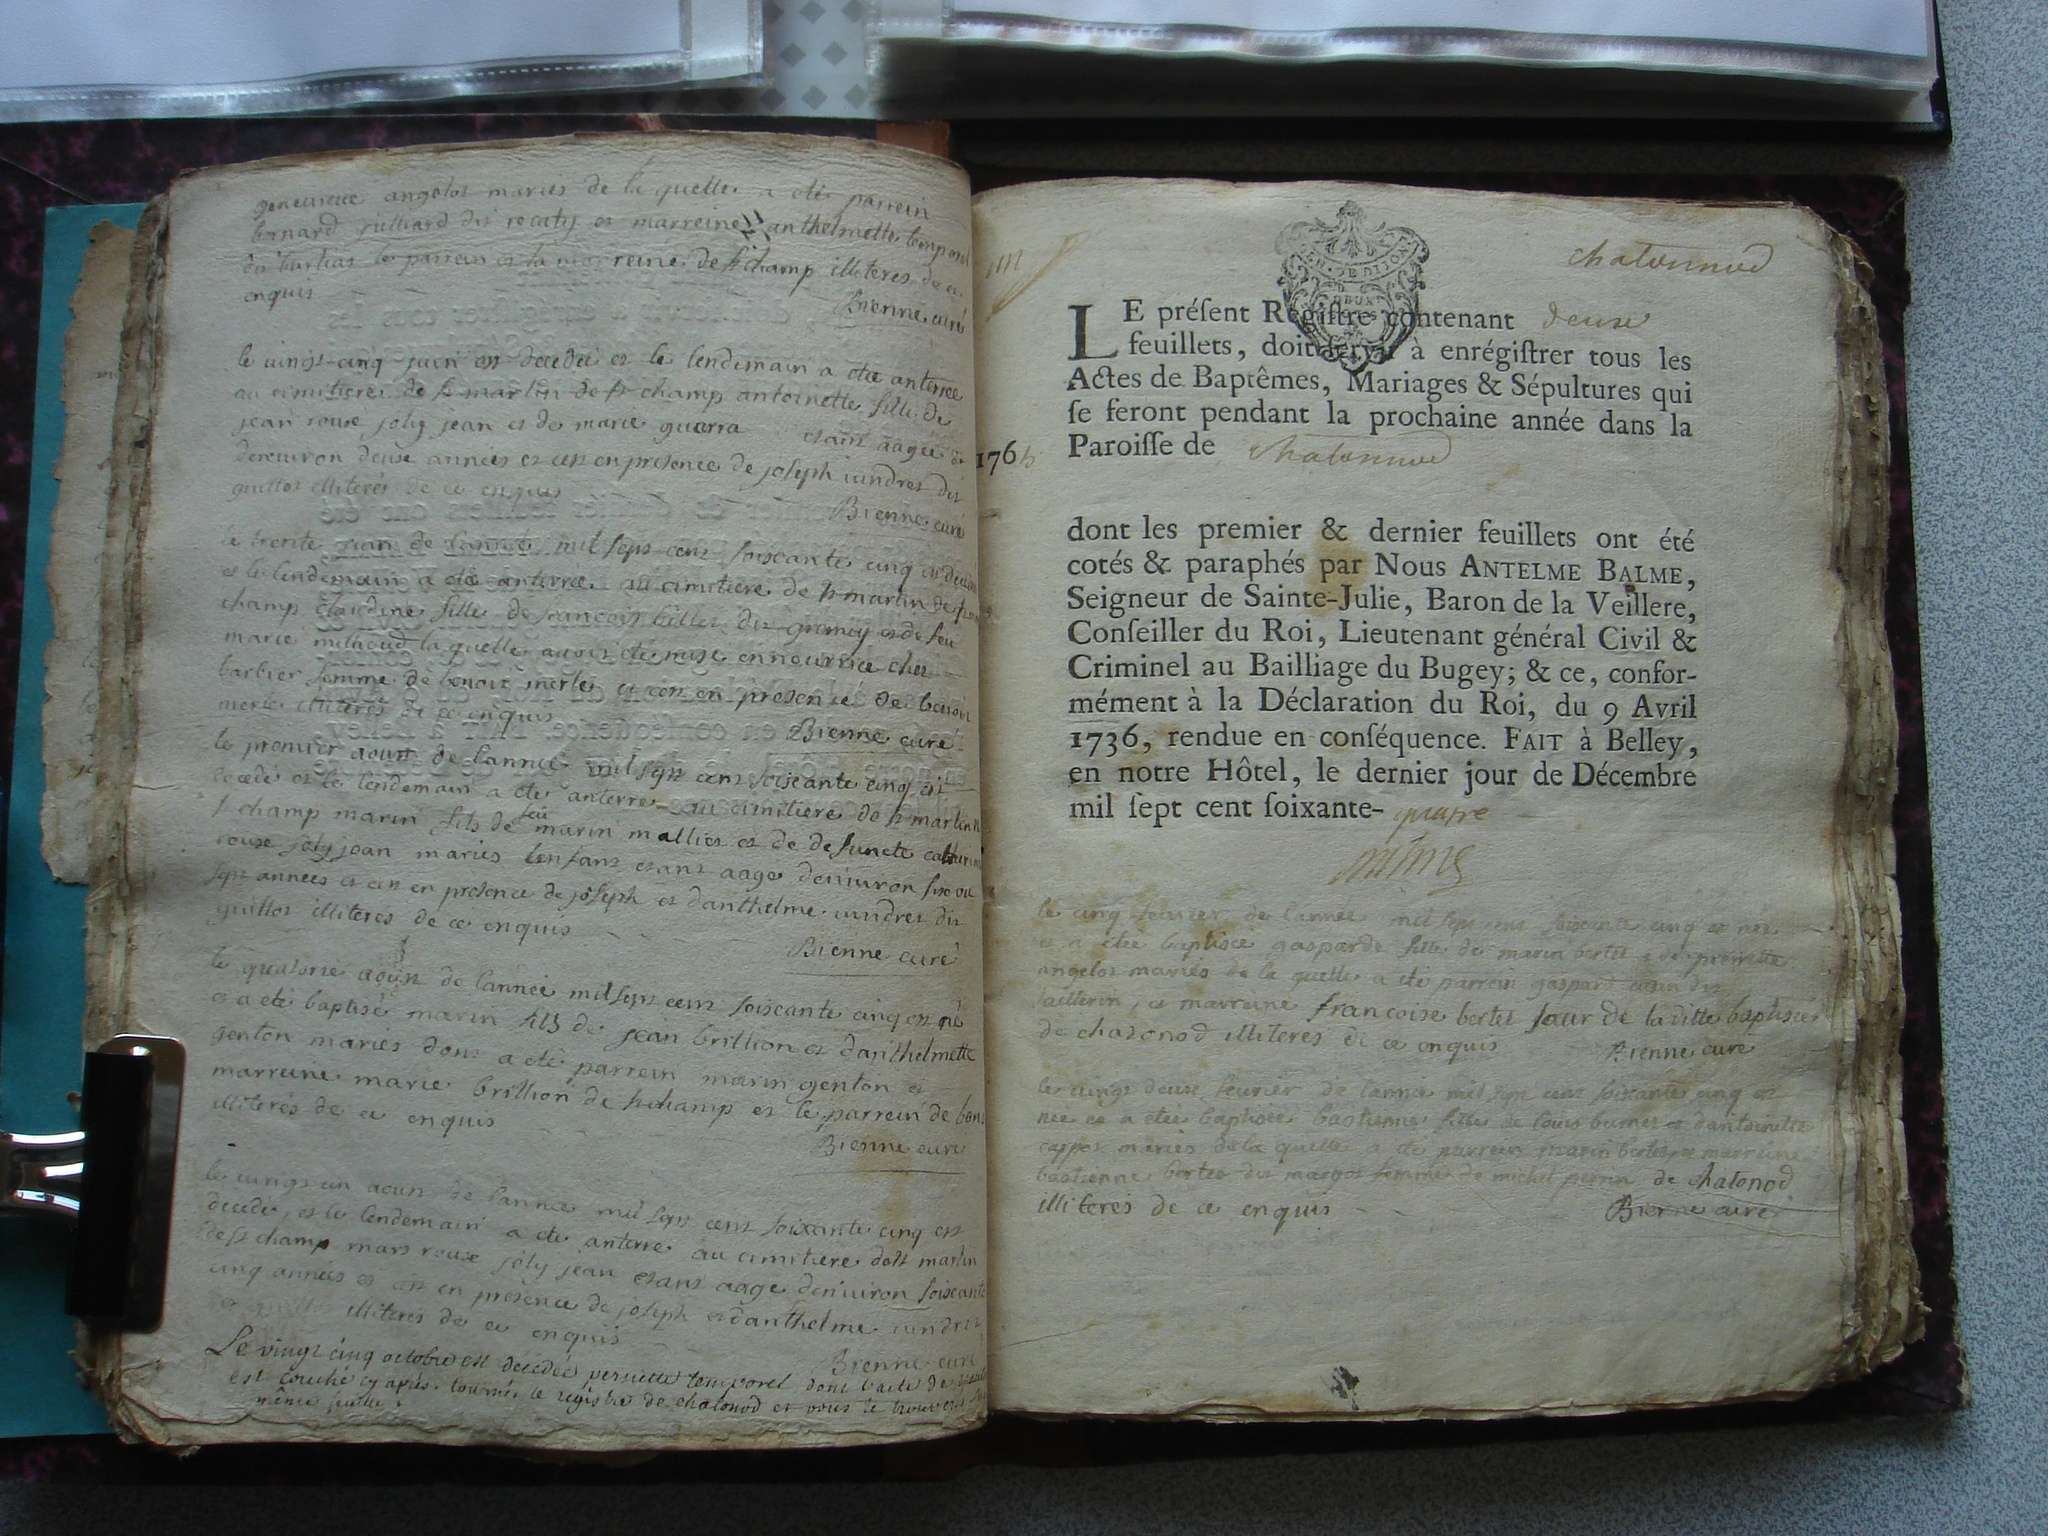 genevieve angelot mariés de la quelle a été parrein
bernard julliard dit recaty et marreine anthelmette temporel
dit turlias le parrein et la marreine de st champ illiteres de ce
enquis
Bienne curé
le vingt-cinq juin est decedeé et le lendemain a eté anterreé
au cimitiere de st martin de st champ antoinette fille de
jean rouse joly jean et de marie guerra etant aageé
denviron deuse annees et cest en presence de joseph vindret dit
guillot illiteres de ce enquis
Bienne curé
le trente juin de lanneé mil sept cent soiscante cinq est
et le lendemain a eté anterreé au cimitiere de st martin de st
champ claudine fille de francois billet dit gromey et de feu
marie milhoud la quelle avoit eté mise en nourrice ches
barbier femme de benoit merle et cest en presence de benoit
merle illiteres de ce enquis
Bienne curé
le premier aoust de lanneé mil sept cent soiscante cinq est
decedé et le lendemain a eté anterré au cimitiere de st martin
st champ marin fils de feu marin mallet et de defuncte catherine
rouse joly jean mariés lenfant etant aagé denviron sise ou
sept années et cest en presence de joseph et danthelme vindret dit
guillot illiteres de ce enquis
Bienne curé
le quatorse aoust de lanneé mil sept cent soiscante cinq est né
et a eté baptisé marin fils de jean brillion et danthelmette
genton mariés dont a eté parrein marin genton et
marreine marie brillion de st champ et le parrein de bons
illiterés de ce enquis
Bienne curé
le vingt un aoust de lanneé mil sept cent soixante cinq est
decedé, et le lendemain a eté anterré au cimitiere de st martin
de st champ mars rouse joly jean etant aagé denviron soiscante
cinq années et cest en presence de joseph et danthelme vindret
illiteres de ce enquis
Bienne curé
Le vingt cinq octobre est décédée pernette temporel dont l'acte de
est couché cy après. tournés le registre de chatonod et vous le trouverés
même feuille.
chatonnod
LE préſent Regiſtre contenant deuse
feuillets, doit ſervir à enrégiſtrer tous les
Actes de Baptêmes, Mariages & Sépultures qui
ſe feront pendant la prochaine année dans la
1765 Paroiſſe de chatonnod
dont les premier & dernier feuillets ont été
cotés & paraphés par Nous ANTELME BALME,
Seigneur de Sainte-Julie, Baron de la Veillere,
Conſeiller du Roi, Lieutenant général Civil &
Criminel au Bailliage du Bugey; & ce, confor-
mément à la Déclaration du Roi, du 9 Avril
1736, rendue en conſéquence. FAIT à Belley,
en notre Hôtel, le dernier jour de Décembre
mil ſept cent ſoixante- quatre
le cinq fevrier de lanneé mil sept cent soiscante cinq est neé
et a eteé baptiseé gasparde fille de marin bertet et de pernette
angelot mariés de la quelle a eté parrein gaspard
et marreine francoise bertet sœur de la ditte baptiseé
de chatonod illiteres de ce enquis Bienne curé
le vingt deuse fevrier de lanneé mil sept cent soixante cinq est
neé et a eteé baptiseé bastienne fille de louis burnet et dantoinette
cappot mariés de la quelle a eté parrein marin bertet et marreine
bastienne bertet dit margot femme de michel perrin de chatonod
illiteres de ce enquis Bienne curé